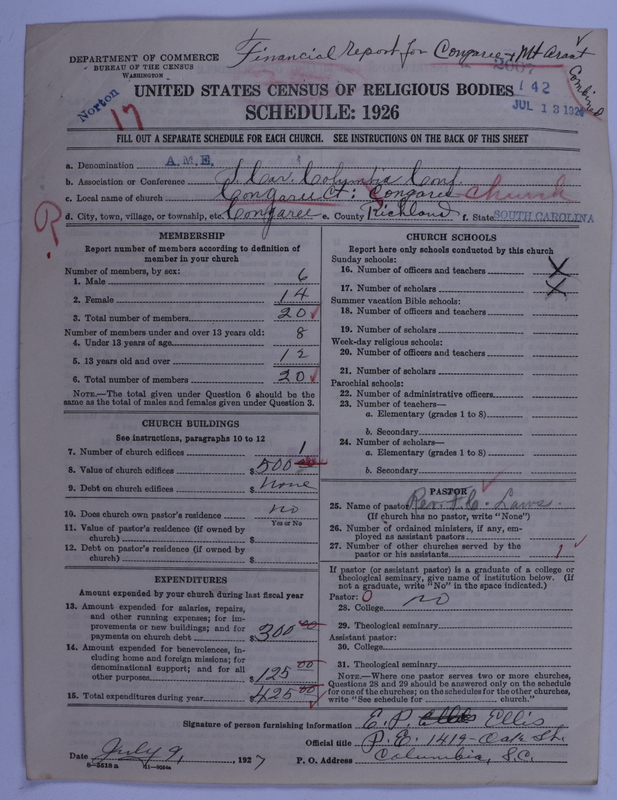 Financial report for Congaree + Mt Arat
Combined
DEPARTMENT OF COMMERCE
BUREAU OF THE CENSUS
WASHINGTON
2007
142
JUL 13 192
Norton
17
UNITED STATES CENSUS OF RELIGIOUS BODIES
SCHEDULE: 1926
FILL OUT A SEPARATE SCHEDULE FOR EACH CHURCH. SEE INSTRUCTIONS ON THE BACK OF THIS SHEET
a. Denomination A.M.E.
b. Association or Conference S. Car. Columbia Conf
c. Local name of church Congaree Congaree church
d. City, town, village, or township, etc. Congaree e. County Richland f. State SOUTH CAROLINA
R
MEMBERSHIP
Report number of members according to definition of
member in your church
Number of members, by sex:
1. Male 6
2. Female 14
3. Total number of members 20
Number of members under and over 13 years old:
4. Under 13 years of age 8
5. 13 years old and over 12
6. Total number of members 20
NOTE.—The total given under Question 6 should be the
same as the total of males and females given under Question 3.
CHURCH BUILDINGS
See instructions, paragraphs 10 to 12
7. Number of church edifices 1
8. Value of church edifices $ 500 00
9. Debt on church edifices $ None
10. Does church own pastor's residence no
Yes or No
11. Value of pastor's residence (if owned by
church) $
12. Debt on pastor's residence (if owned by
church) $
EXPENDITURES
Amount expended by your church during last fiscal year
13. Amount expended for salaries, repairs,
and other running expenses; for im-
provements or new buildings; and for
payments on church debt $ 300 00
14. Amount expended for benevolences, in-
cluding home and foreign missions; for
denominational support; and for all
other purposes $ 125 00
15. Total expenditures during year $ 425 00
CHURCH SCHOOLS
Report here only schools conducted by this church
Sunday schools:
16. Number of officers and teachers X
17. Number of scholars X
Summer vacation Bible schools:
18. Number of officers and teachers
19. Number of scholars
Week-day religious schools:
20. Number of officers and teachers
21. Number of scholars
Parochial schools:
22. Number of administrative officers
23. Number of teachers—
a. Elementary (grades 1 to 8)
b. Secondary
24. Number of scholars—
a. Elementary (grades 1 to 8)
b. Secondary
PASTOR
25. Name of pastor Rev. F. C. Laws
(If church has no pastor, write "None")
26. Number of ordained ministers, if any, em-
ployed as assistant pastors
27. Number of other churches served by the
pastor or his assistants 1
If pastor (or assistant pastor) is a graduate of a college or
theological seminary, give name of institution below. (If
not a graduate, write "No" in the space indicated.)
Pastor: 0
28. College no
29. Theological seminary
Assistant pastor:
30. College
31. Theological seminary
NOTE.—Where one pastor serves two or more churches,
Questions 28 and 29 should be answered only on the schedule
for one of the churches; on the schedules for the other churches,
write "See schedule for church."
Signature of person furnishing information E. P. Ellis
Official title P.E. 1419- Oak St.
Date July 9, 1927 P. O. Address Columbia, S.C.
8-5518 a 11-9064a